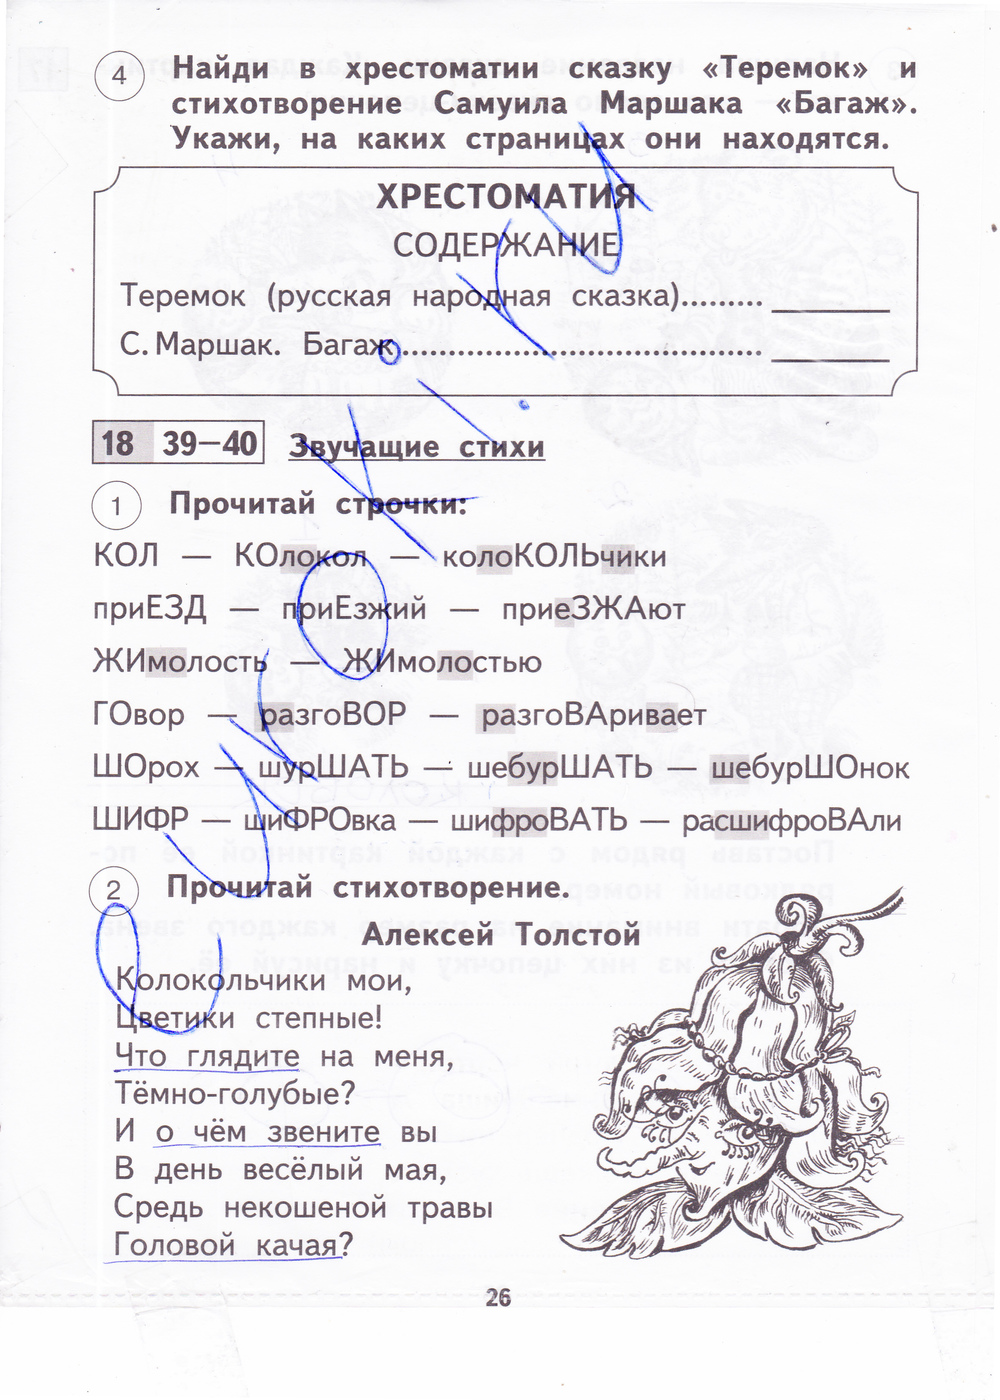 4 Найди в хрестоматии сказку «Теремок» и
стихотворение Самуила Маршака «Багаж».
Укажи, на каких страницах они находятся.
ХРЕСТОМАТИЯ
СОДЕРЖАНИЕ
Теремок (русская народная сказка)......... ______
С. Маршак. Багаж....................................... ______
18 39—40 Звучащие стихи
1 Прочитай строчки:
КОЛ — КОлокол — колоКОЛЬчики
приЕЗД — приЕзжий — приеЗЖАют
ЖИмолость — ЖИмолостью
ГОвор — разгоВОР — разгоВАривает
ШОрох — шурШАТЬ — шебурШАТЬ — шебурШОнок
ШИФР — шиФРОвка — шифроВАТЬ — расшифроВАли
2 Прочитай стихотворение.
Алексей Толстой
Колокольчики мои,
Цветики степные!
Что глядите на меня,
Тёмно-голубые?
И о чём звените вы
В день весёлый мая,
Средь некошеной травы
Головой качая?
26